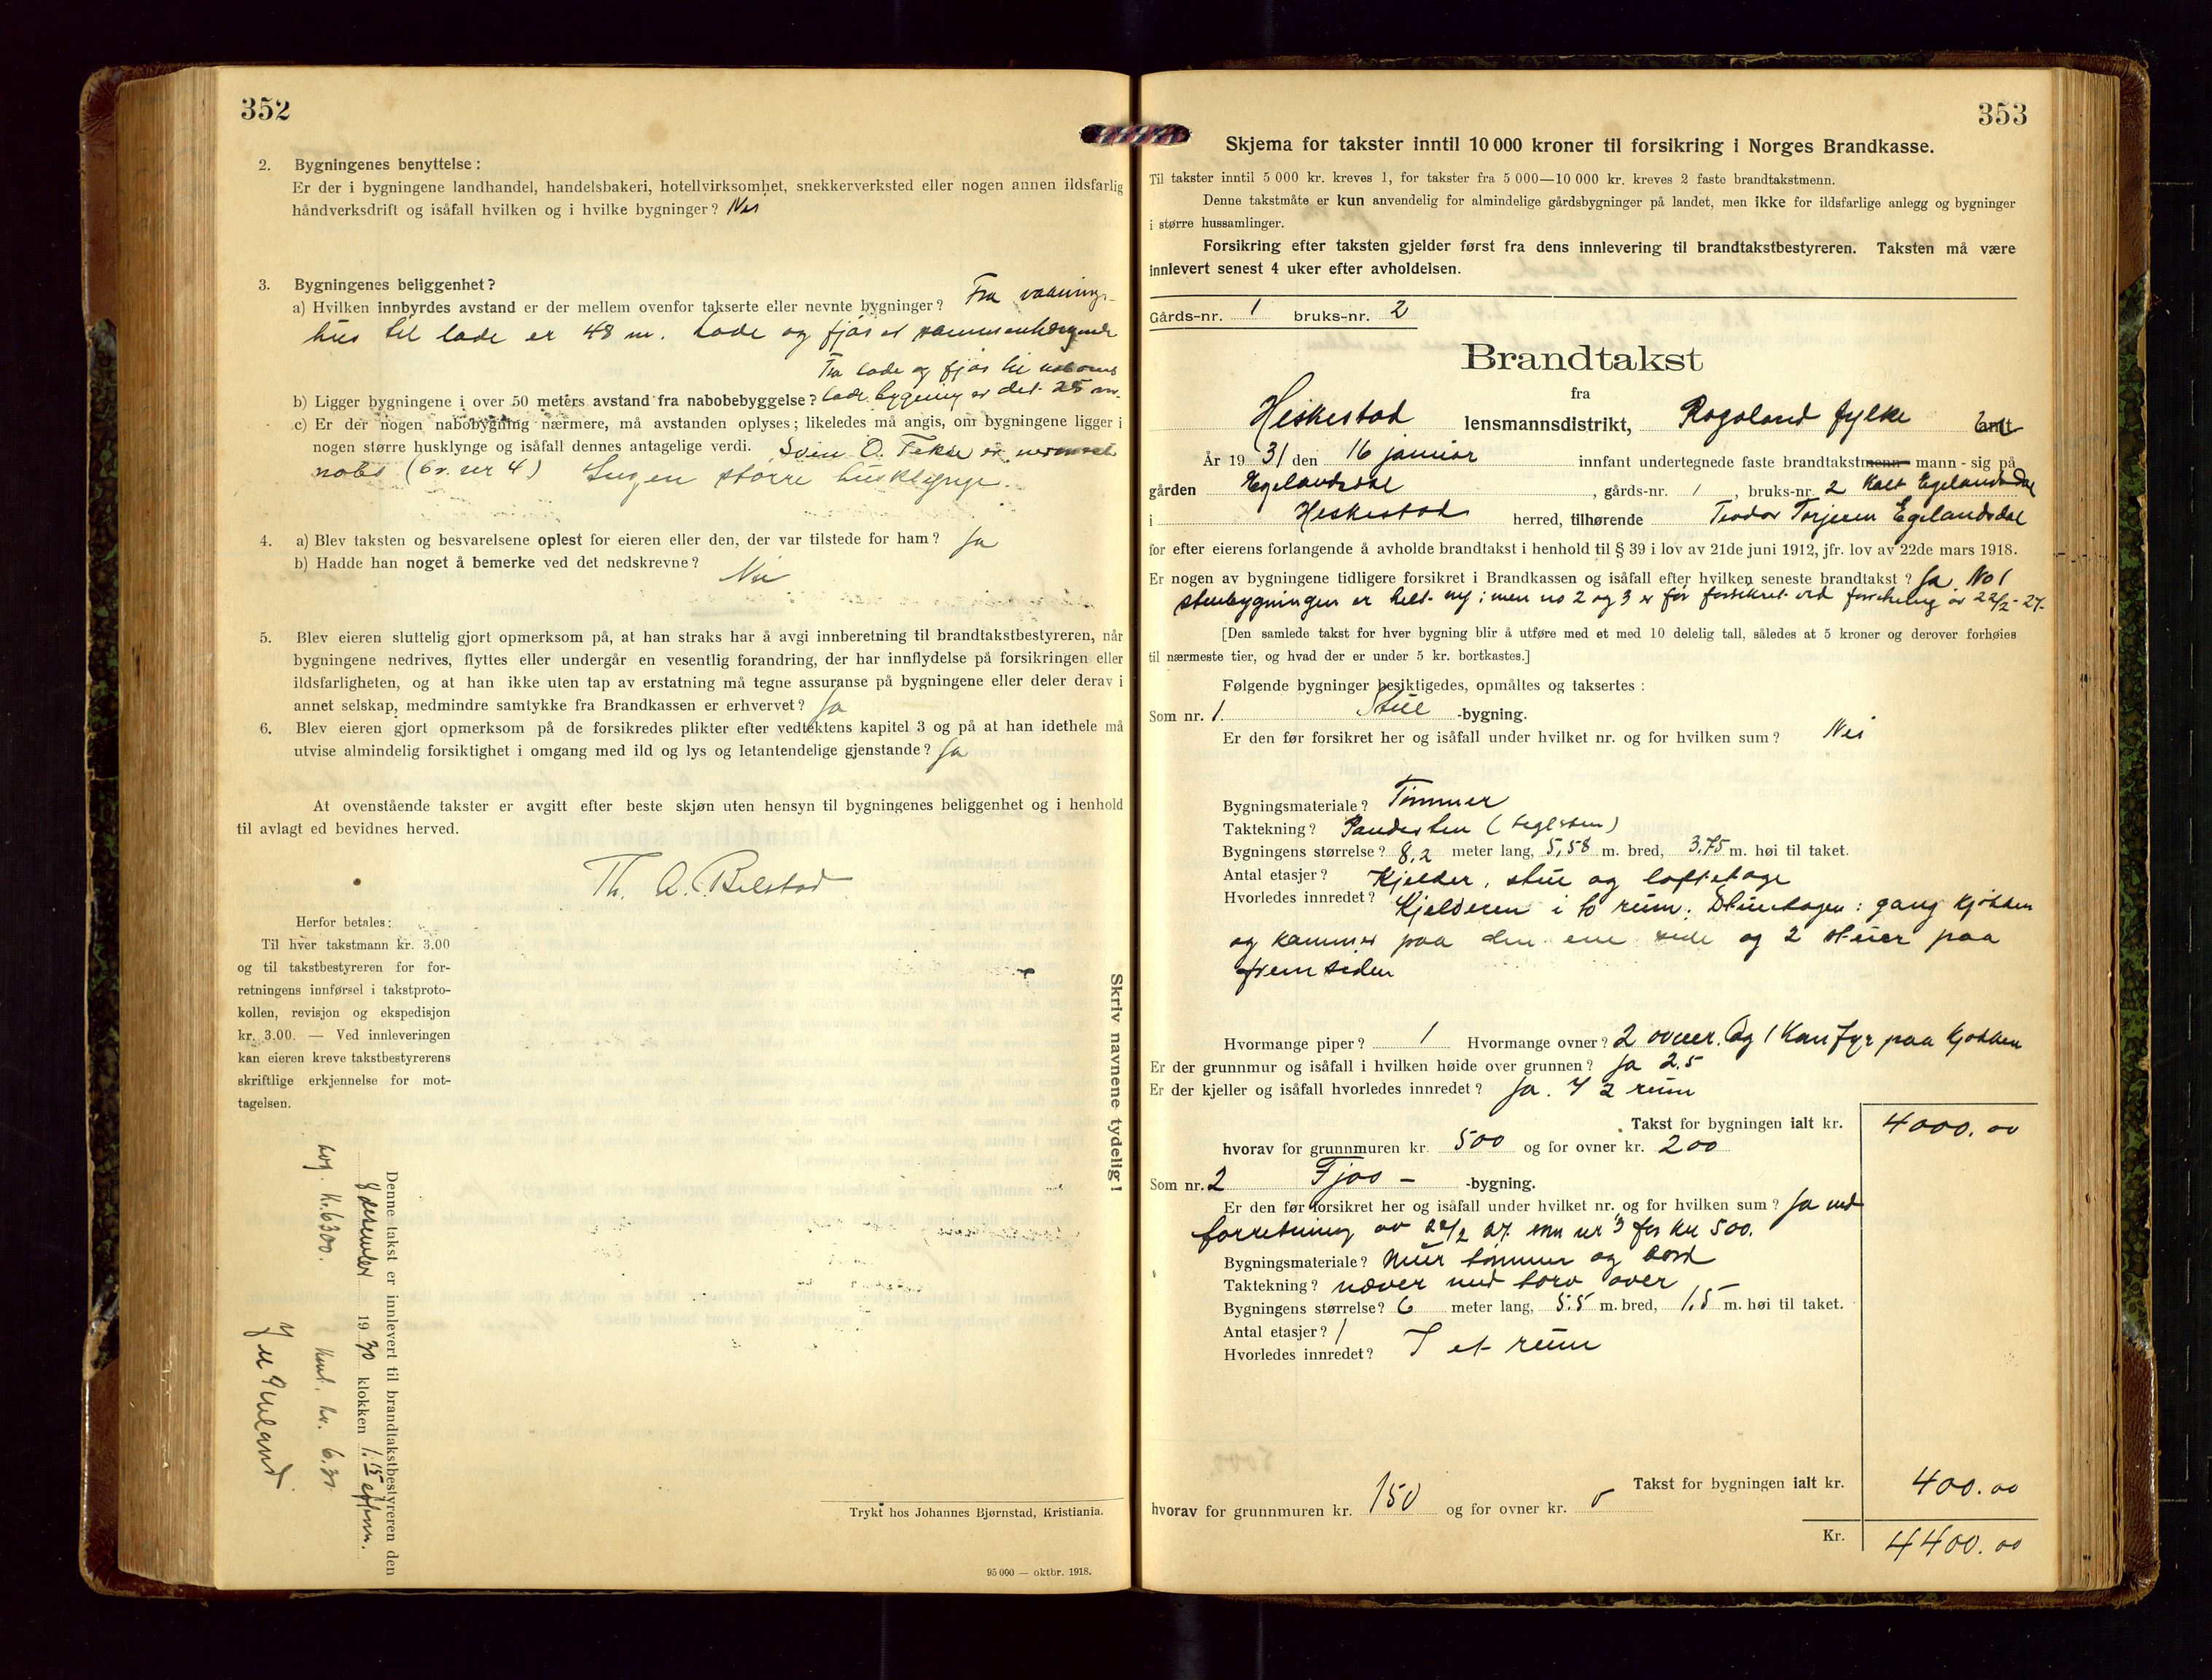 352
2. Bygningenes benyttelse:
Er der i bygningene landhandel, handelsbakeri, hotellvirksomhet, snekkerverksted eller nogen annen ildsfarlig
håndverksdrift og isåfall hvilken og i hvilke bygninger? Nei
3. Bygningenes beliggenhet?
a) Hvilken innbyrdes avstand er der mellem ovenfor takserte eller nevnte bygninger? Fra vaanings-
hus til lade er 48 m. Lade og fjøs er sammenhængende
Fra lade og fjøs til naboens
b) Ligger bygningene i over 50 meters avstand fra nabobebyggelse? lade bygning er det 25 m.
c) Er der nogen nabobygning nærmere, må avstanden oplyses; likeledes må angis, om bygningene ligger i
nogen større husklynge og isåfall dennes antagelige verdi. Svein O. Fekse er nærmeste
nabo (br. nr 4) Ingen større husklynge.
4. a) Blev taksten og besvarelsene oplest for eieren eller den, der var tilstede for ham? Ja
b) Hadde han noget å bemerke ved det nedskrevne? Nei
5. Blev eieren sluttelig gjort opmerksom på, at han straks har å avgi innberetning til brandtakstbestyreren, når
bygningene nedrives, flyttes eller undergår en vesentlig forandring, der har innflydelse på forsikringen eller
ildsfarligheten, og at han ikke uten tap av erstatning må tegne assuranse på bygningene eller deler derav i
annet selskap, medmindre samtykke fra Brandkassen er erhvervet? Ja
6. Blev eieren gjort opmerksom på de forsikredes plikter efter vedtektens kapitel 3 og på at han idethele må
utvise almindelig forsiktighet i omgang med ild og lys og letantendelige gjenstande? Ja
At ovenstående takster er avgitt efter beste skjøn uten hensyn til bygningenes beliggenhet og i henhold
til avlagt ed bevidnes herved.
Th. A. Bilstad
Herfor betales:
Til hver takstmann kr. 3.00
og til takstbestyreren for for-
retningens innførsel i takstproto-
kollen, revisjon og ekspedisjon
kr. 3.00. — Ved innleveringen
kan eieren kreve takstbestyrerens
skriftlige erkjennelse for mot-
tagelsen.
Skriv navnene tydelig!
Denne takst er innlevert til brandtakstbestyreren den
8 desember 1930 klokken 1.15 efterm.
Kr. 6300.
Trykt hos Johannes Bjørnstad, Kristiania.
95 000 — oktbr. 1918.
353
Skjema for takster inntil 10 000 kroner til forsikring i Norges Brandkasse.
Til takster inntil 5 000 kr. kreves 1, for takster fra 5 000—10 000 kr. kreves 2 faste brandtakstmenn.
Denne takstmåte er kun anvendelig for almindelige gårdsbygninger på landet, men ikke for ildsfarlige anlegg og bygninger
i større hussamlinger.
Forsikring efter taksten gjelder først fra dens innlevering til brandtakstbestyreren. Taksten må være
innlevert senest 4 uker efter avholdelsen.
Gårds-nr. 1 bruks-nr. 2
Brandtakst
fra
Heskestad lensmannsdistrikt, Rogaland fylke amt
År 1931 den 16 januar innfant undertegnede faste brandtakstmenn mann - sig på
gården Egelandsdal, gårds-nr. 1, bruks-nr. 2 kalt Egelandsdal
i Heskestad herred, tilhørende Teodor Torjesen Egelandsdal
for efter eierens forlangende å avholde brandtakst i henhold til § 39 i lov av 21de juni 1912, jfr. lov av 22de mars 1918.
Er nogen av bygningene tidligere forsikret i Brandkassen og isåfall efter hvilken seneste brandtakst? Ja No 1
stuebygningen er helt ny; men no 2 og 3 er før forsikret ved forretning av 22/2-27.
[Den samlede takst for hver bygning blir å utføre med et med 10 delelig tall, således at 5 kroner og derover forhøies
til nærmeste tier, og hvad der er under 5 kr. bortkastes.]
Følgende bygninger besiktigedes, opmåltes og taksertes:
Som nr. 1. Stue -bygning.
Er den før forsikret her og isåfall under hvilket nr. og for hvilken sum? Nei
Bygningsmateriale? Tømmer
Taktekning? Pandesten (teglsten)
Bygningens størrelse? 8,2 meter lang, 5,58 m. bred, 3,75 m. høi til taket.
Antal etasjer? Kjelder, stue og loftetage
Hvorledes innredet? Kjelderen i to rum. Stuetagen: gang kjøkken
og kammer paa den ene side og 2 stuer paa
fremsiden
Hvormange piper? 1 Hvormange ovner? 2 ovner. Og 1 komfyr paa kjøkken
Er der grunnmur og isåfall i hvilken høide over grunnen? Ja 2.5
Er der kjeller og isåfall hvorledes innredet? Ja. I 2 rum
Takst for bygningen ialt kr. 4000.00
hvorav for grunnmuren kr. 500 og for ovner kr. 200
Som nr. 2 Fjøs - -bygning.
Er den før forsikret her og isåfall under hvilket nr. og for hvilken sum? Ja ved
forretning av 22/2 27. som nr 3 for kr 500.
Bygningsmateriale? Mur tømmer og bord
Taktekning? næver med torv over
Bygningens størrelse? 6 meter lang, 5.5 m. bred, 1.5 m. høi til taket.
Antal etasjer? 1
Hvorledes innredet? I et rum
Takst for bygningen ialt kr. 400.00
hvorav for grunnmuren kr. 150 og for ovner kr. 0
Kr. 4400.00